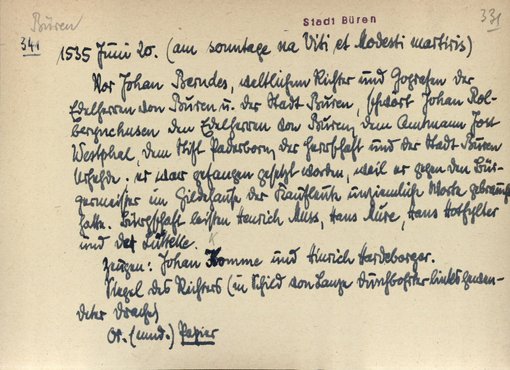 Büren
Stadt Büren
331
341
1535 Juni 20. (am sonntage na Viti et Modesti martiris)
Vor Johan Berndes, weltlichem Richter und Gografen der
Edelherren von Büren u. der Stadt Büren, schwört Johan Rol-
berynchusen dem Edelherren von Büren, dem Amtmann Jost
Westphal, dem Stift Paderborn, der Herrschaft und der Stadt Büren
Urfehde. er war gefangen gesetzt worden, weil er gegen den Bür-
germeister im Gildehause der Kaufleute unziemliche Worte gebraucht
hatte. Bürgschaft leisten Henrich Muss, Hans Mure, Hans
und der
Zeugen: Johan Komme und Hinrich Hardeborger.
Siegel des Richters (im Schild von Lanze durchbohrter linksgewen-
deter Drache)
Or. (mnd.) Papier